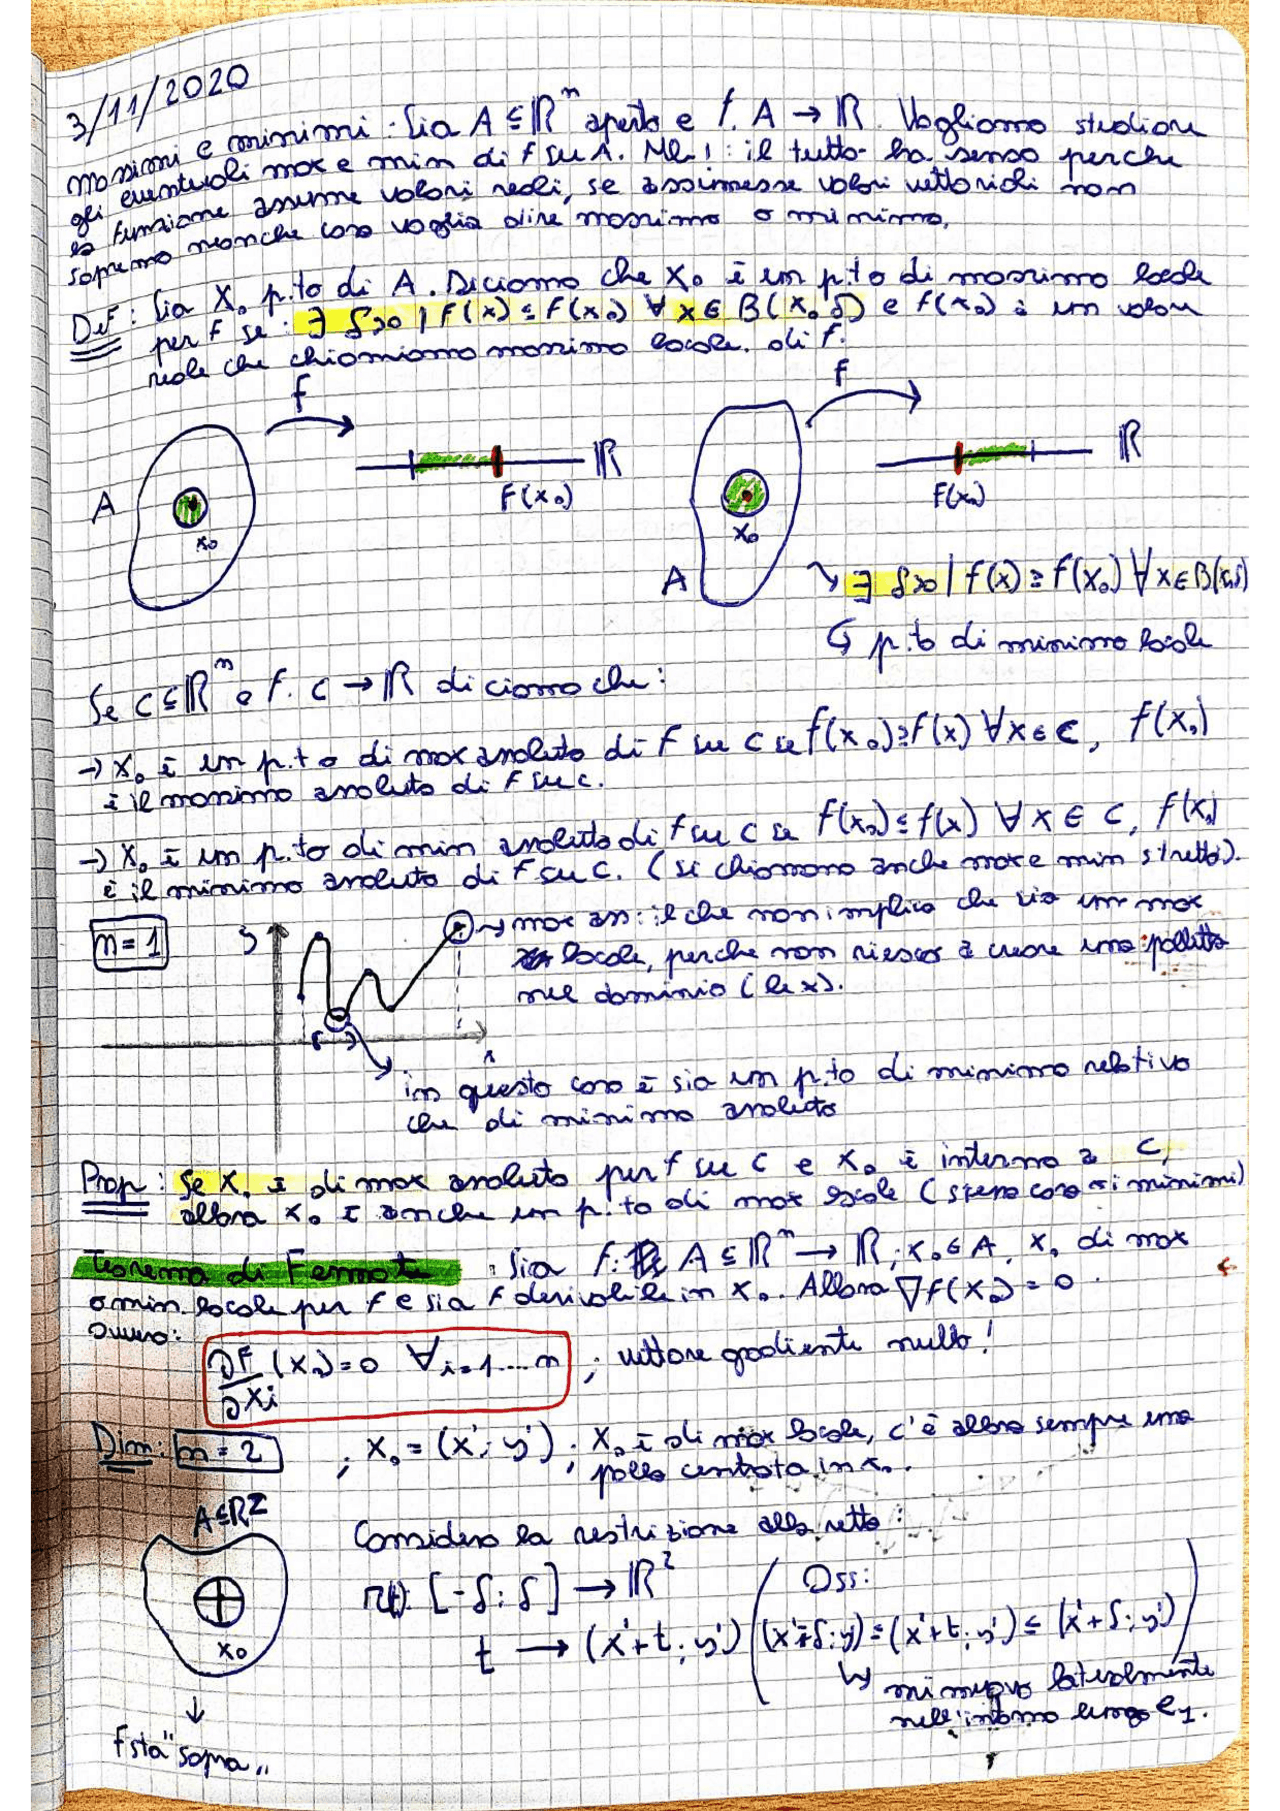 3/11/2020
massimi e minimi: Sia A ⊆ ℝⁿ aperto e f: A → ℝ. Vogliamo studiare
gli eventuali max e min di f su A. Nb!: il tutto ha senso perche
la funzione assume valori reali, se assumesse valori vettoriali non
sapremo neanche cosa voglia dire massimo o minimo.
Def: Sia x₀ p.to di A. Diciamo che x₀ è un p.to di massimo locale
per f se: ∃ δ>0 | f(x) ≤ f(x₀) ∀ x ∈ B(x₀ δ) e f(x₀) è un valore
reale che chiamiamo massimo locale di f.
f
f
A
x₀
ℝ
F(x₀)
A
x₀
ℝ
F(x₀)
↘ ∃ δ>0 | f(x) ≥ f(x₀) ∀ x ∈ B(x₀,δ)
↳ p.to di minimo locale
Se C ⊆ ℝⁿ e f: C → ℝ diciamo che:
→ x₀ è un p.to di max assoluto di f su C se f(x₀) ≥ f(x) ∀ x ∈ C, f(x₀)
è il massimo assoluto di f su C.
→ x₀ è un p.to di min assoluto di f su C se f(x₀) ≤ f(x) ∀ x ∈ C, f(x₀)
è il minimo assoluto di f su C. (si chiamano anche max e min stretti).
n=1
y
→ max ass: il che non implica che sia un max
locale, perche non riesco a creare una palletta
nel dominio (le x).
x
in questo caso è sia un p.to di minimo relativo
che di minimo assoluto
Prop: Se x₀ è di max assoluto per f su C e x₀ è interno a C,
allora x₀ è anche un p.to di max locale (stessa cosa x i minimi)
Teorema di Fermat: Sia f: A ⊆ ℝⁿ → ℝ, x₀ ∈ A, x₀ di max
o min. locale per f e sia f derivabile in x₀. Allora ∇f(x₀) = 0.
Ovvero:
∂F/∂xi (x₀) = 0 ∀ i=1....n ; vettore gradiente nullo!
Dim: n=2 ; x₀ = (x'; y'); x₀ è di max locale, c'è allora sempre una
palla centrata in x₀.
A ⊆ ℝ²
Considero la restrizione alla retta:
r(t): [-δ; δ] → ℝ²
t → (x'+t; y')
Oss:
(x'-δ; y') ≤ (x'+t; y') ≤ (x'+δ; y')
↳ mi muovo lateralmente
nell'intorno lungo e₁.
x₀
↓
F sta "sopra"